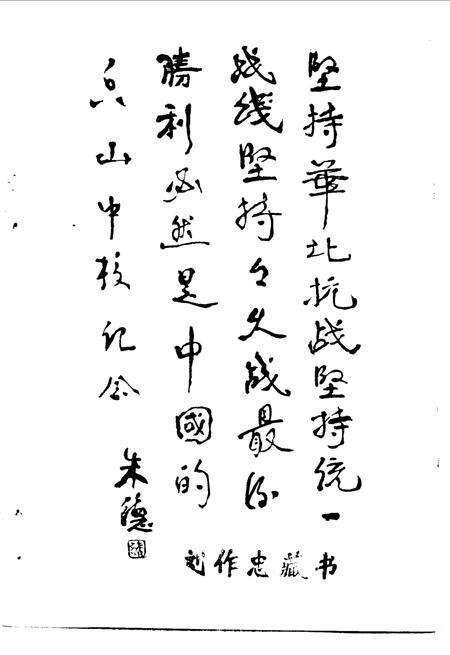 堅持華北抗战堅持統一
战綫堅持々久战最后
勝利必然是中國的
山中校纪念
朱德
刘作忠藏书